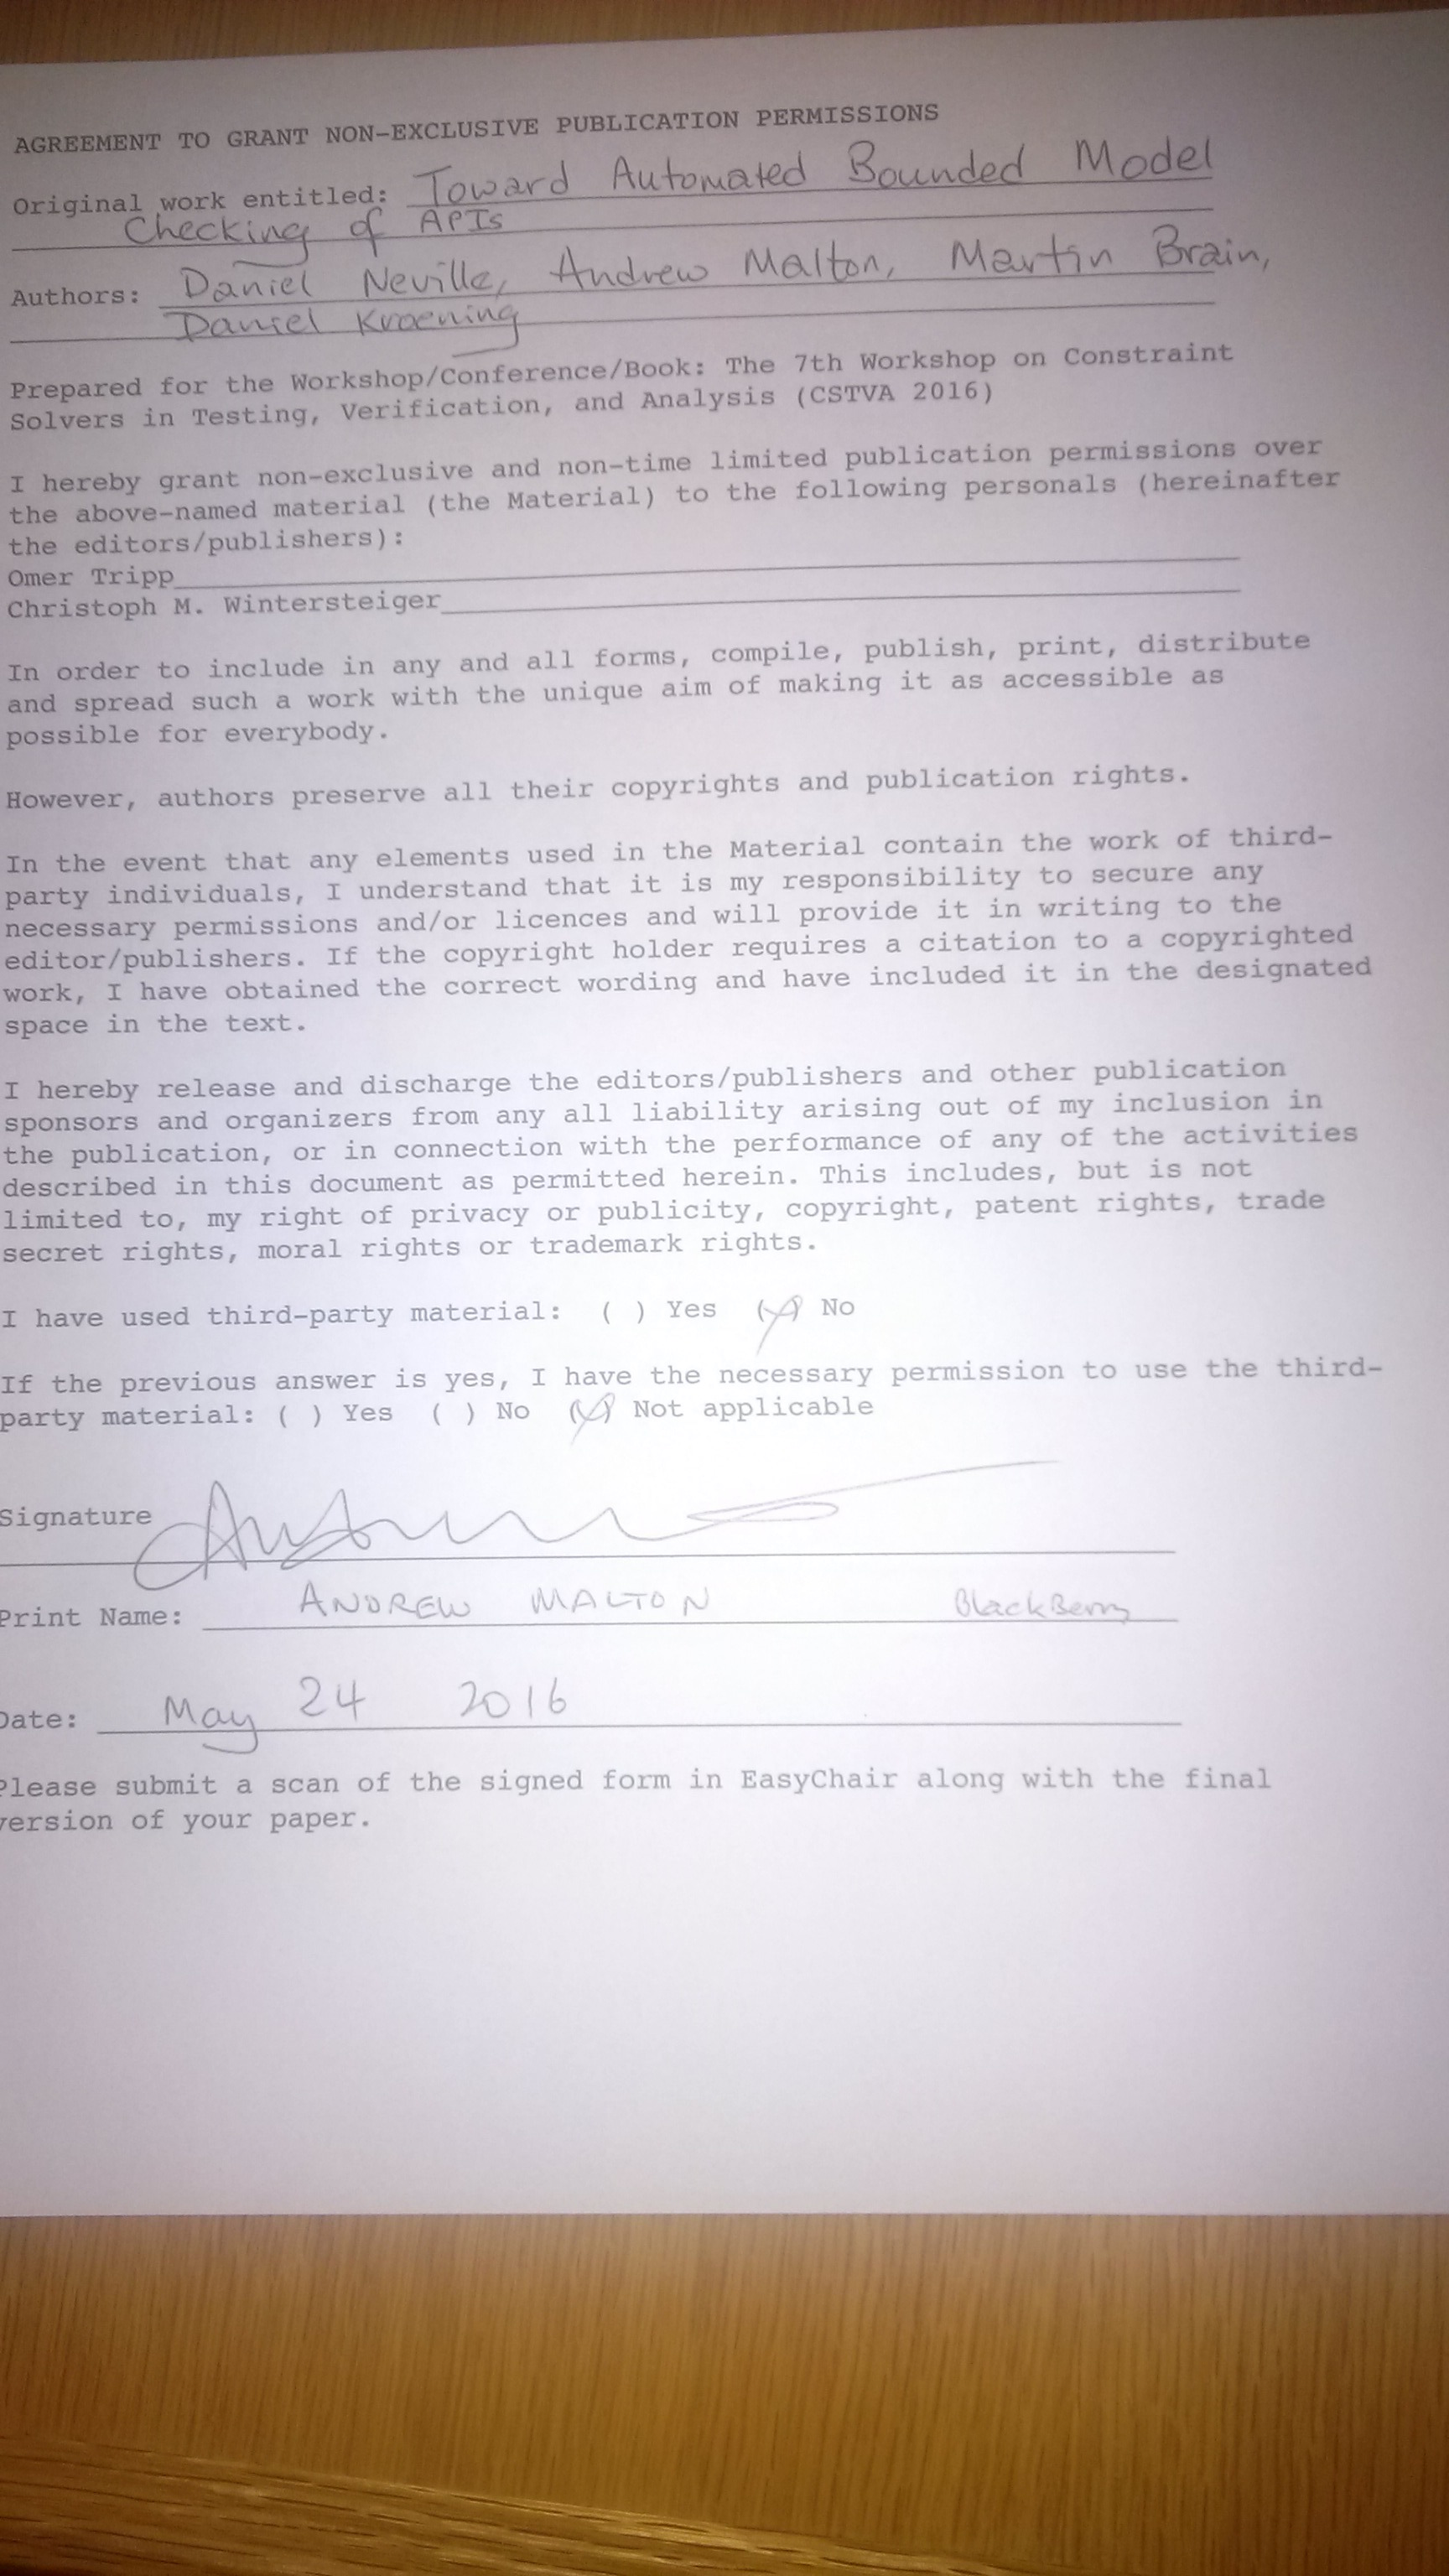 AGREEMENT TO GRANT NON-EXCLUSIVE PUBLICATION PERMISSIONS
Original work entitled: Toward Automated Bounded Model
Checking of APIs
Authors: Daniel Neville, Andrew Malton, Martin Brain,
Daniel Kroening
Prepared for the Workshop/Conference/Book: The 7th Workshop on Constraint
Solvers in Testing, Verification, and Analysis (CSTVA 2016)
I hereby grant non-exclusive and non-time limited publication permissions over
the above-named material (the Material) to the following personals (hereinafter
the editors/publishers):
Omer Tripp
Christoph M. Wintersteiger
In order to include in any and all forms, compile, publish, print, distribute
and spread such a work with the unique aim of making it as accessible as
possible for everybody.
However, authors preserve all their copyrights and publication rights.
In the event that any elements used in the Material contain the work of third-
party individuals, I understand that it is my responsibility to secure any
necessary permissions and/or licences and will provide it in writing to the
editor/publishers. If the copyright holder requires a citation to a copyrighted
work, I have obtained the correct wording and have included it in the designated
space in the text.
I hereby release and discharge the editors/publishers and other publication
sponsors and organizers from any all liability arising out of my inclusion in
the publication, or in connection with the performance of any of the activities
described in this document as permitted herein. This includes, but is not
limited to, my right of privacy or publicity, copyright, patent rights, trade
secret rights, moral rights or trademark rights.
I have used third-party material: ( ) Yes (X) No
If the previous answer is yes, I have the necessary permission to use the third-
party material: ( ) Yes ( ) No (X) Not applicable
Signature
Print Name: ANDREW MALTON BlackBerry
Date: May 24 2016
Please submit a scan of the signed form in EasyChair along with the final
version of your paper.